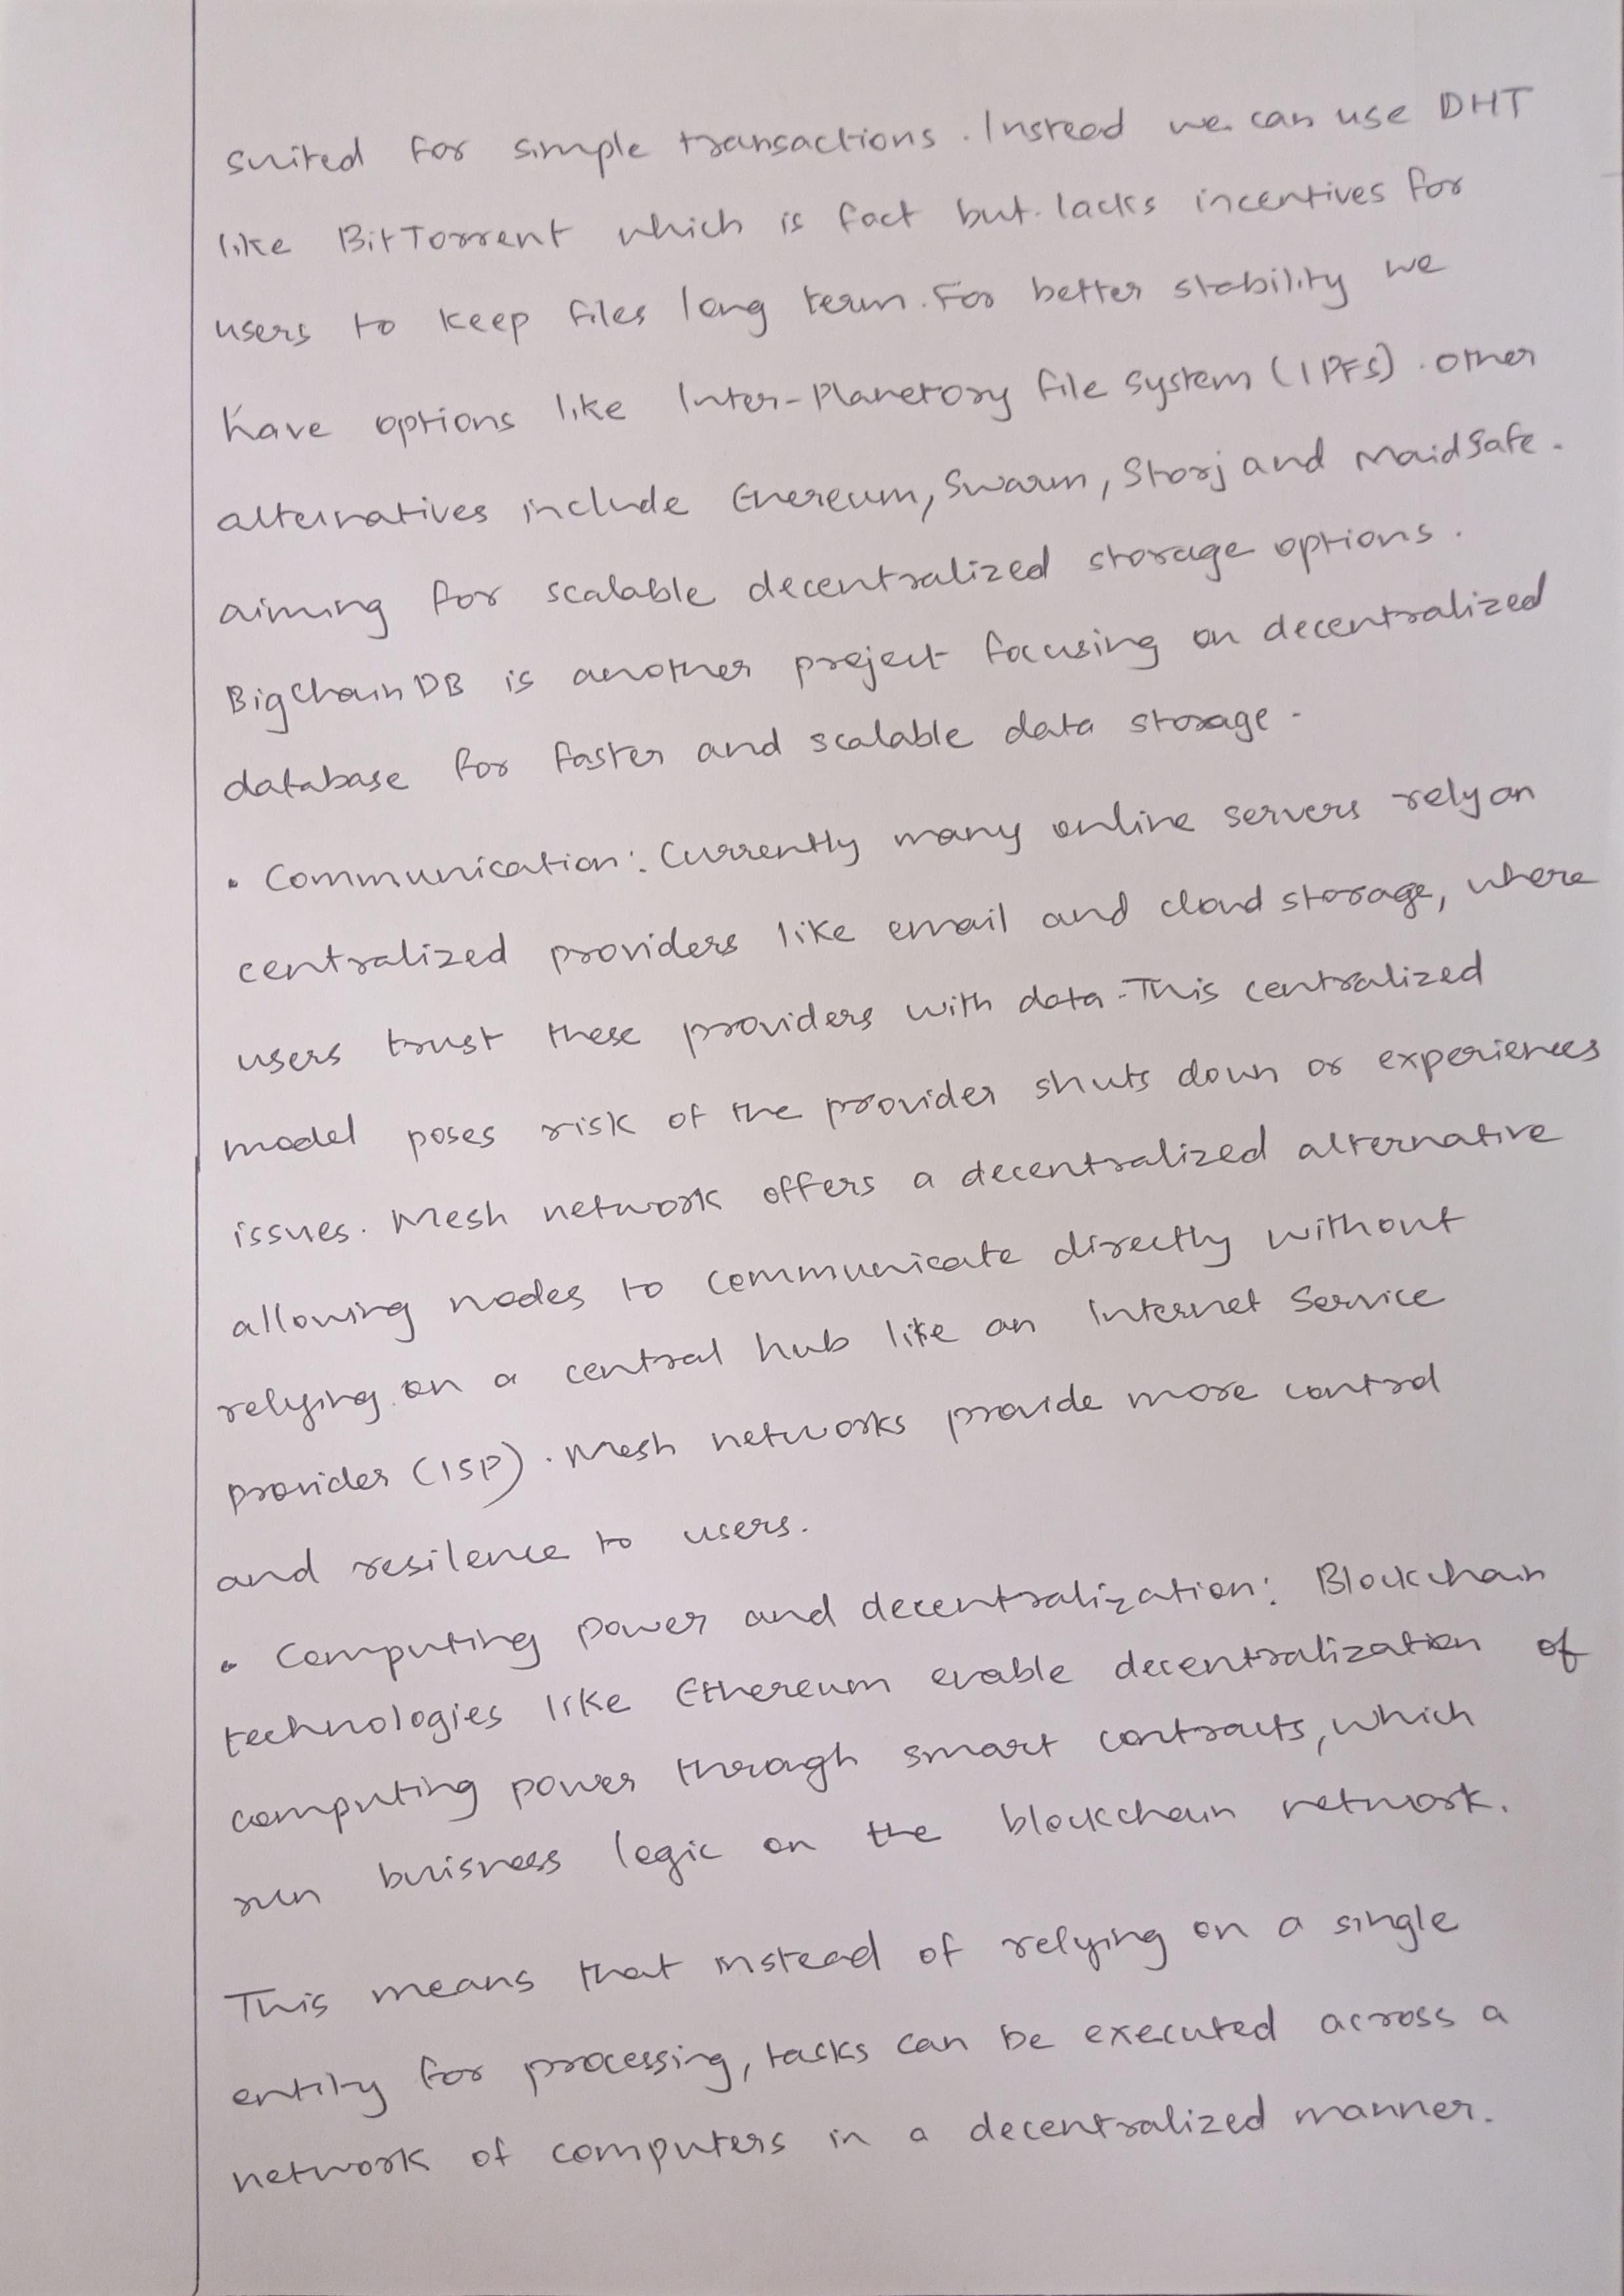 suited for simple transactions. Instead we can use DHT
like BitTorrent which is fact but lacks incentives for
users to keep files long term. For better stability we
have options like Inter-Planetory file system (IPFS). Other
alternatives include Ethereum, Swarm, Storj and MaidSafe.
aiming for scalable decentralized storage options.
BigChainDB is another project focusing on decentralized
database for faster and scalable data storage.
• Communication: Currently many online servers rely on
centralized providers like email and cloud storage, where
users trust these providers with data. This centralized
model poses risk of the provider shuts down or experiences
issues. Mesh network offers a decentralized alternative
allowing nodes to communicate directly without
relying on a central hub like an Internet Service
provider (ISP). Mesh networks provide more control
and resilence to users.
• Computing power and decentralization: Blockchain
technologies like Ethereum enable decentralization of
computing power through smart contracts, which
run buisness logic on the blockchain network.
This means that instead of relying on a single
entity for processing, tasks can be executed across a
network of computers in a decentralized manner.